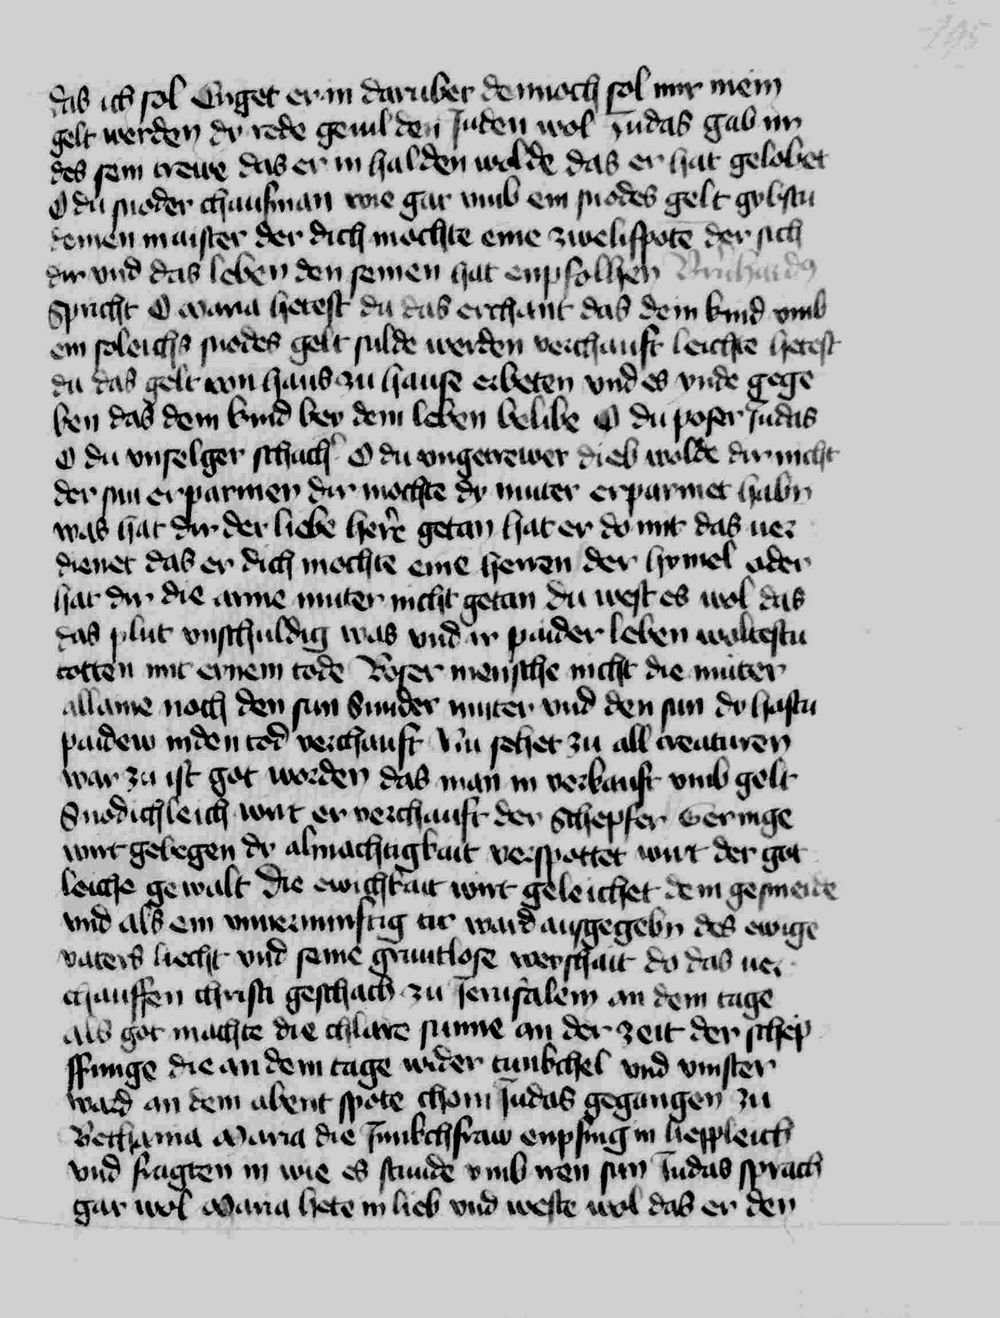 das ich sol Enget er in daruber dennoch sol mir mein
gelt werden dy rede geuil den Juden wol Judas gab im
des sein trewe das er in halden wolde das er hat gelobet
O du snoder chaufman wie gar vmb ein snodes gelt gybstu
deinen maister der dich mochte eine zwelifpote der sich
dir vnd das leben den seinen hat enpfolhen Bernhardus
Spricht O Maria hetest du das erchant das dein kind vmb
ein soleichs snodes gelt sulde werden verchauft leichte hetest
du das gelt von haus zu hause erbeten vnd es vnde gege
ben das dein kind bey dem leben belibe O du poser Judas
O du vnselger schach O du vngetrewer dieb wolde dir nicht
der sun erparmen dir mochte dy muter erparmet habn
was hat dir der liebe herre getan hat er do mit das uer
dienet das er dich mochte eine herren der hymel oder
hat dir die arme muter nicht getan du west es wol das
das plut vnschuldig was vnd ir paider leben woltestu
totten mit eynem tode Boser mensche nicht die muter
allaine noch den sun Sunder muter vnd den sun dy hastu
paidew in den tod verchauft Nu sehet zu all creaturen
war zu ist got worden das man in verkauft vmb gelt
Snodichleich wirt er verchauft der Schepfer Geringe
wirt gebegen dy almachtigkait verspottet wirt der got
leiche gewalt Die ewichkait wirt geleichet dem gesmeide
vnd als ein vnuernunftig tir ward ausgegebn des ewige
vaters liecht vnd seine gruntlose weyshait do das uer
chauffen christi geschach zu Jerusalem an dem tage
als got machte die chlare sunne an der zeit der schep
ffunge die an dem tage wider tunkchel vnd vinster
ward an dem abent spote chom Judas gegangen zu
Bethania Maria die Junkchfraw enpfing in liepleich
vnd fragten in wie es stunde vmb iren sun Judas sprach
gar wol Maria hete in lieb vnd weste wol das er den